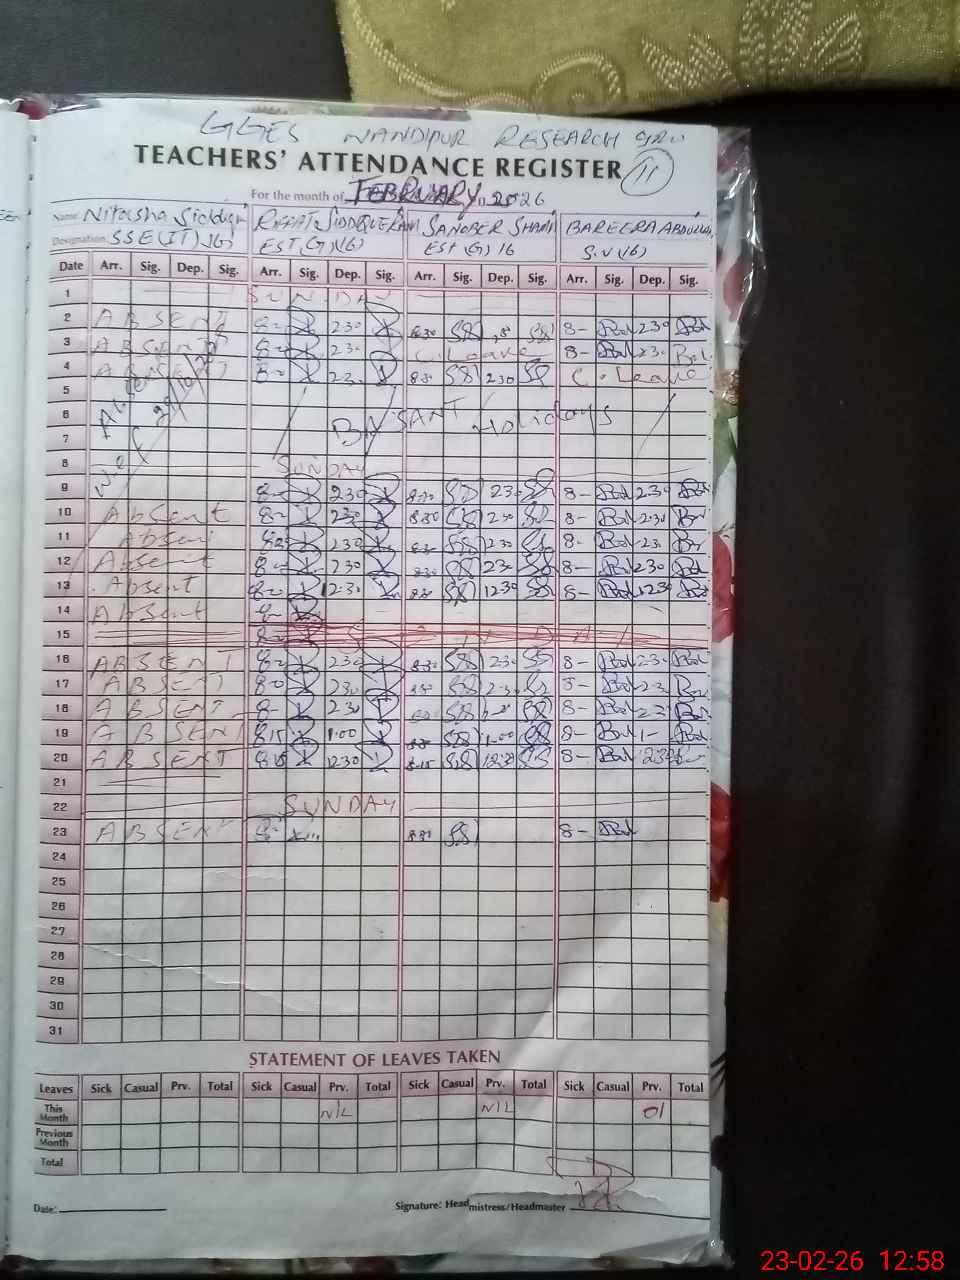 GGES NANDIPUR RESEARCH GRW
TEACHERS' ATTENDANCE REGISTER 11
For the month of FEBRUARY 2026
Name: Nitasha Siddiqa RIFFAT SIDDIQUE RANI SANOBER SHAMI BAREERA ABDULLAH
Designation: SSE(IT)(16) EST(G)(16) EST (G) 16 S.V(16)
Date Arr. Sig. Dep. Sig. Arr. Sig. Dep. Sig. Arr. Sig. Dep. Sig. Arr. Sig. Dep. Sig.
1 SUNDAY
2 ABSENT 8- 230 830 SS 8- 230
3 ABSENT 8- 230 C. Leave 8- 230
4 ABSENT 8- 230 830 SS 230 SS C. Leave
5
6 BASANT Holidays
7
8 SUNDAY
9 8- 230 830 SS 230 SS 8- 230
10 Absent 8- 230 830 SS 230 SS 8- 230
11 Absent 8- 230 830 SS 230 SS 8- 230
12 Absent 8- 230 830 SS 230 SS 8- 230
13 Absent 8- 1230 830 SS 1230 SS 8- 1230
14 Absent 8-
15 SUNDAY
16 ABSENT 8- 230 830 SS 230 SS 8- 230
17 ABSENT 8- 230 830 SS 230 SS 8- 230
18 ABSENT 8- 230 SS SS 8- 230
19 ABSENT 815 1:00 SS 1:00 SS 8- 1-
20 ABSENT 815 12:30 8:15 SS 12:30 SS 8-
21
22 SUNDAY
23 ABSENT 8- 830 SS 8-
24
25
26
27
28
29
30
31
STATEMENT OF LEAVES TAKEN
Leaves Sick Casual Prv. Total Sick Casual Prv. Total Sick Casual Prv. Total Sick Casual Prv. Total
This Month NIL NIL 01
Previous Month
Total
Date: Signature: Headmistress/Headmaster
23-02-26 12:58